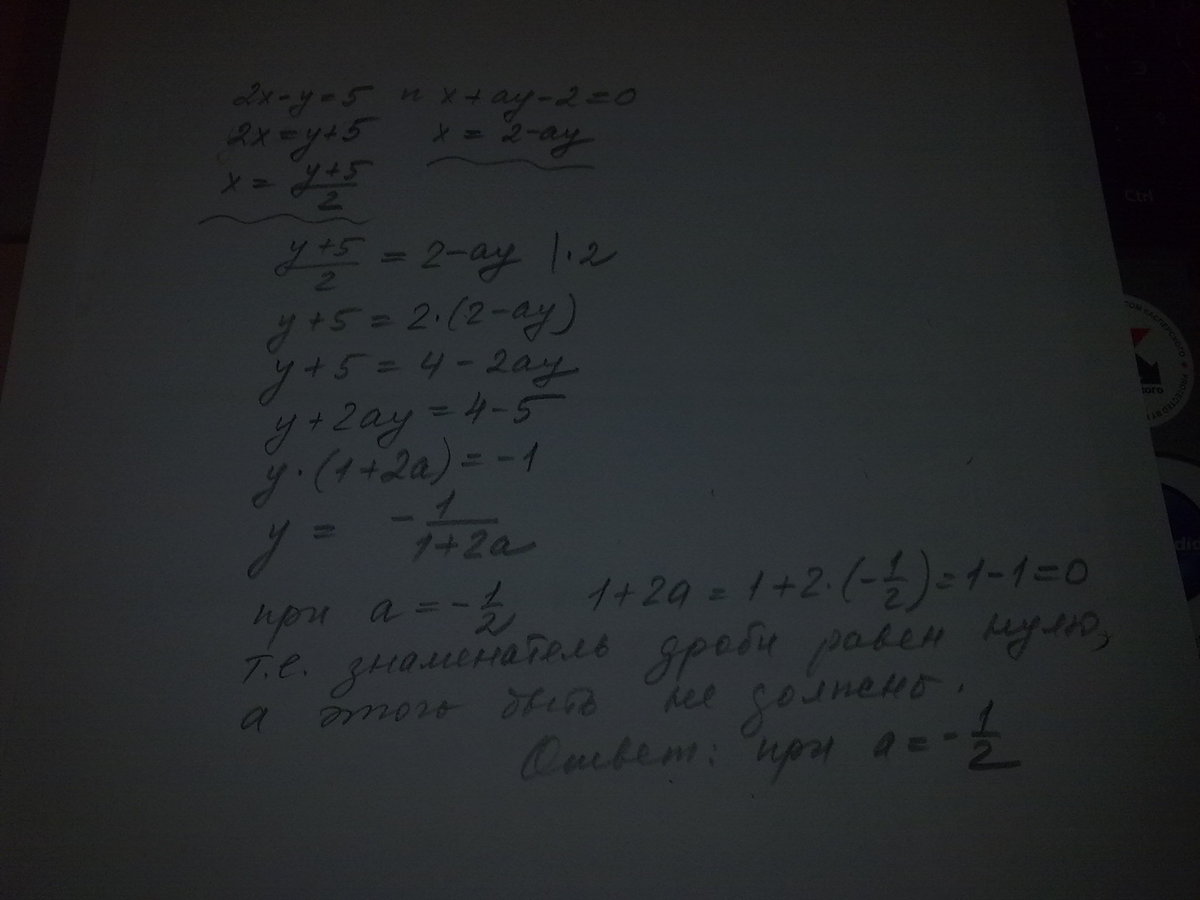 2x-y=5 и x+ay-2=0
2x=y+5 x= 2-ay
x= \frac{y+5}{2}
\frac{y+5}{2} = 2-ay |·2
y+5=2·(2-ay)
y+5=4-2ay
y+2ay=4-5
y·(1+2a)=-1
y= -\frac{1}{1+2a}
при a=-\frac{1}{2} 1+2a=1+2·(-\frac{1}{2})=1-1=0
т.е. знаменатель дроби равен нулю,
а этого быть не должно.
Ответ: при a=-\frac{1}{2}
Ctrl